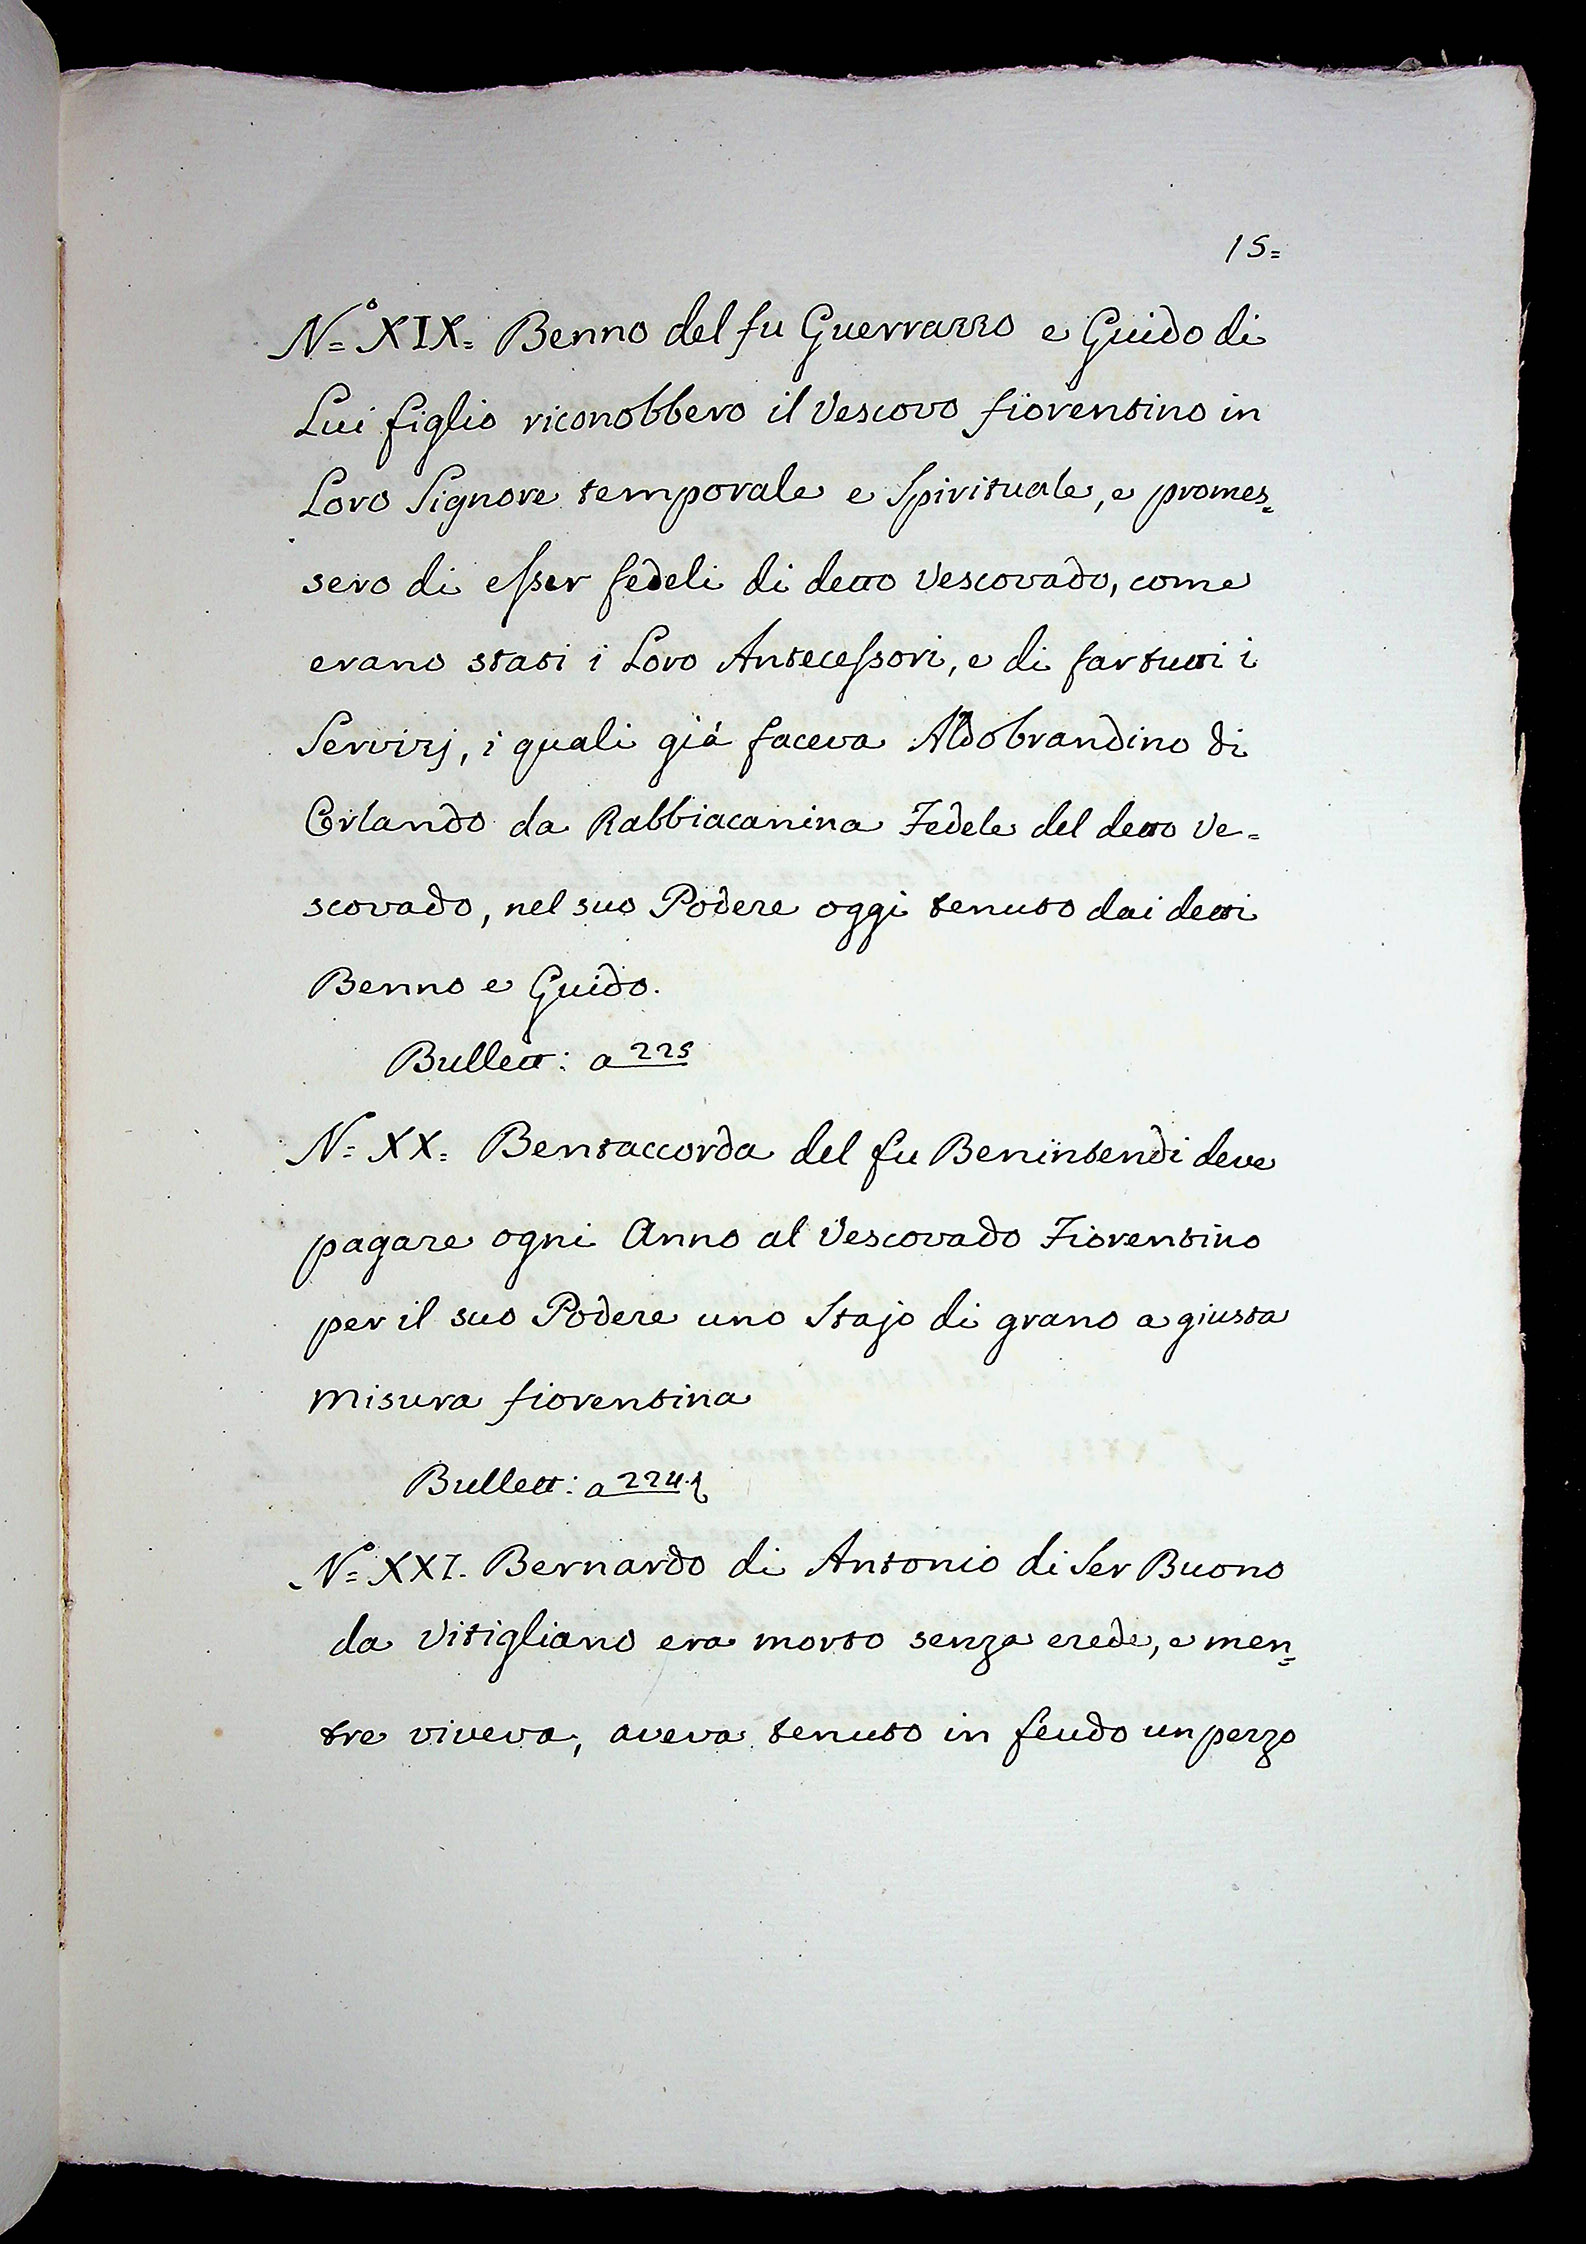 15=
N=° XIX= Benno del fu Guerrazzo e Guido di
Lui figlio riconobbero il Vescovo fiorentino in
Loro Signore temporale e Spirituale, e promes=
sero di esser fedeli di detto Vescovado, come
erano stati i Loro Antecessori, e di far tutti i
Servizj, i quali già faceva Aldobrandino di
Orlando da Rabbiacanina Fedele del detto Ve=
scovado, nel suo Podere oggi tenuto dai detti
Benno e Guido.
Bullett: a 225
N=° XX= Bentaccorda del fu Benintendi deve
pagare ogni Anno al Vescovado Fiorentino
per il suo Podere uno Stajo di grano a giusta
misura fiorentina
Bullett: a 224.
N=° XXI. Bernardo di Antonio di Ser Buono
da Vitigliano era morto senza erede, e men=
tre viveva, aveva tenuto in feudo un pezzo